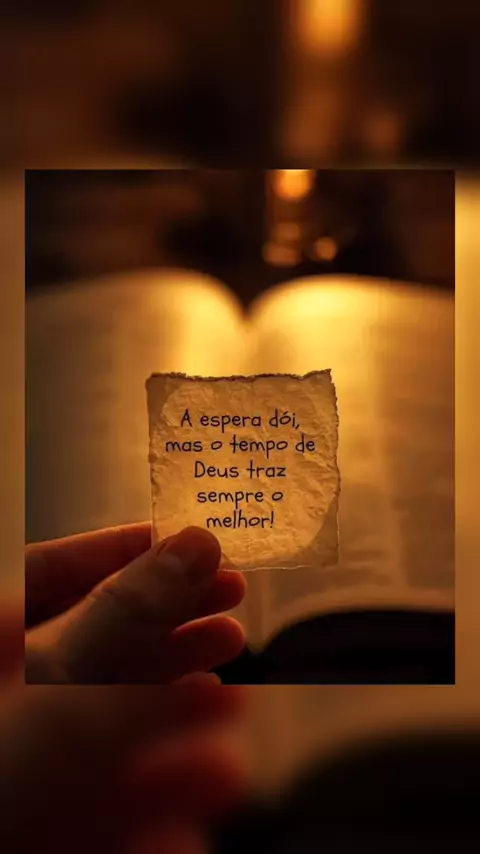 A espera dói,
mas o tempo de
Deus traz
sempre o
melhor!